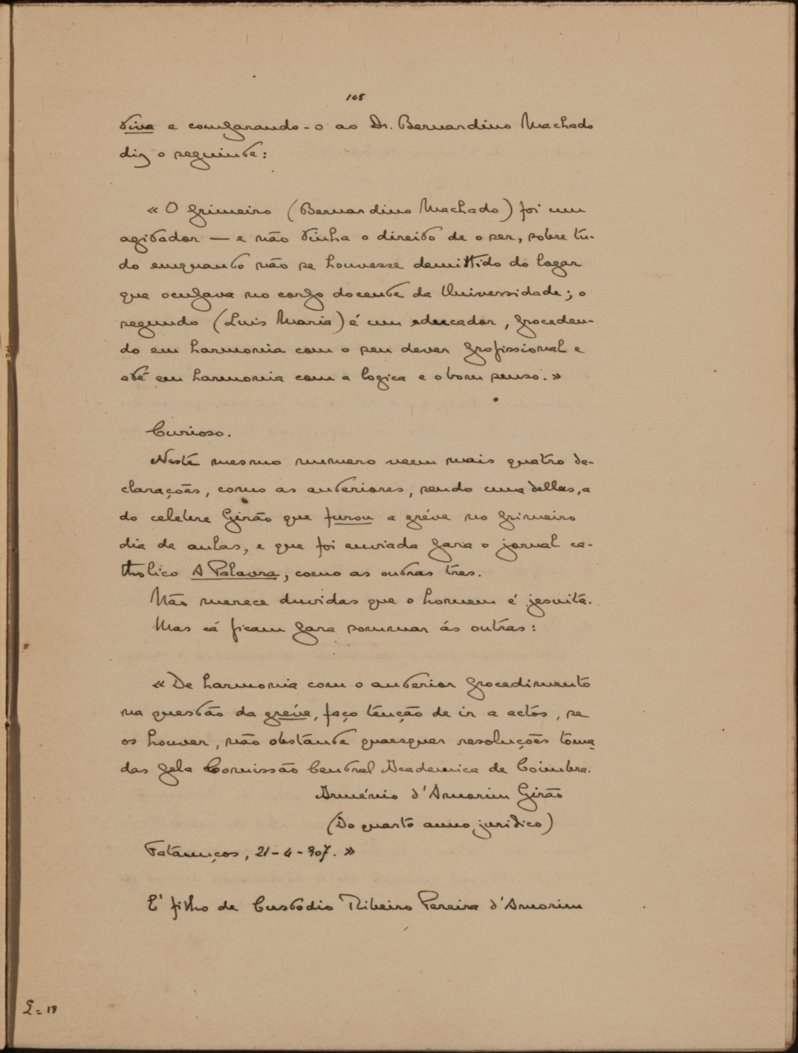 145
tiva e comparando-o ao Dr. Bernardino Machado
diz o seguinte:
« O primeiro (Bernardino Machado) foi um
agitador — e não tinha o direito de o ser, sobre tu-
do emquanto não se houvesse demittido do logar
que occupava no corpo docente da Universidade; o
segundo (Luis Maria) é um educador, proceden-
do em harmonia com o seu dever profissional e
até em harmonia com a logica e o bom senso. »
Curioso.
Neste mesmo numero veem mais quatro de-
clarações, como as anteriores, sendo uma dellas, a
do celebre Girão que furou a gréve no primeiro
dia de aulas, e que foi enviada para o jornal ca-
tholico A Palavra, como as outras tres.
Não merece duvidas que o homem é jesuita.
Mas cá ficam para sommar ás outras:
« De harmonia com o anterior procedimento
na questão da gréve, faço tenção de ir a actos, se
os houver, não obstante quaesquer resoluções toma
das pela Comissão Central Academica de Coimbra.
Arménio d'Amorim Girão
(Do quarto anno juridico)
Fataunços, 21-4-907. »
E' filho de Custodio Ribeiro Pereira d'Amorim
2=19